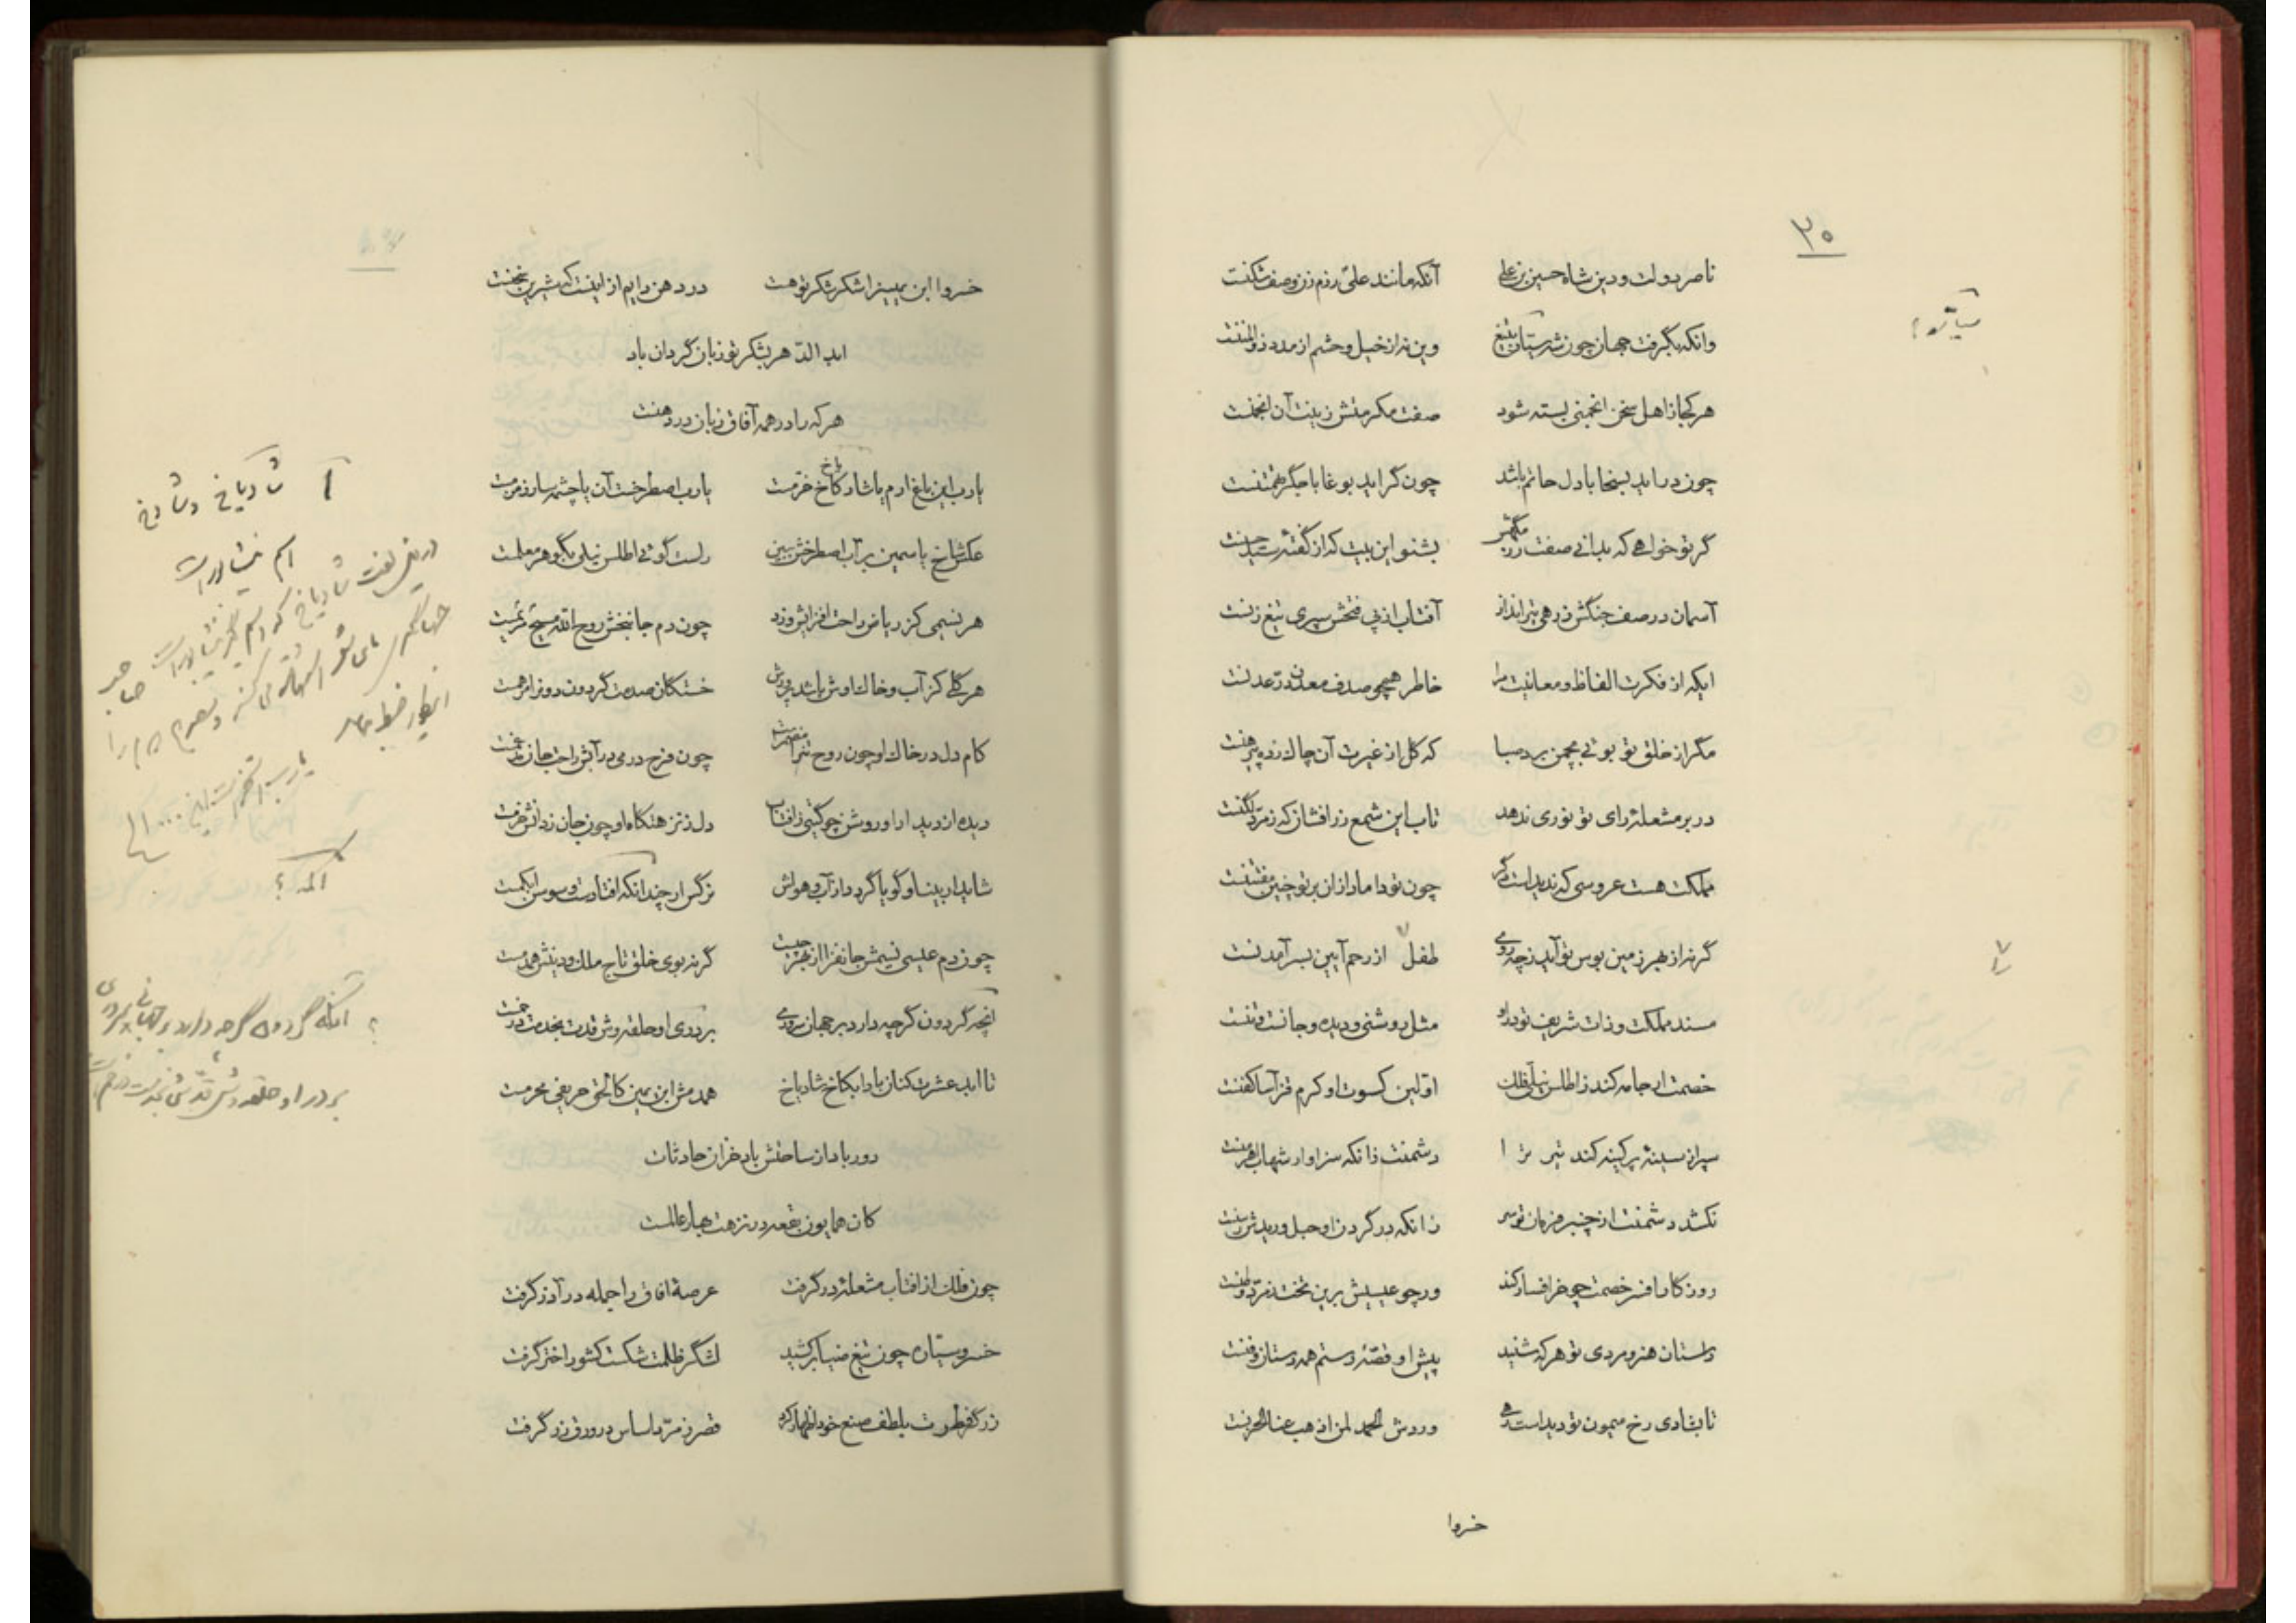 ۲۰
ناصر دولت و دین شاه حسین بن علی آنکه مانند علی رزم زن و صف شکنت
وانکه بگرفت جهان چون بتیغ وین نه از خیل و حشم از مدد ذوالمننت
هر کجا از اهل سخن انجمنی بسته شود صفت مکرمتش زینت آن انجمنت
چون دراید بسخا با دل حاتم باشد چون گراید بوغا با جگر تهمتنت
گر تو خواهی که بدانی صفت بشنو این بیت که از گفته سید حسنت
آسمان در صف جنگش زرهی تیرانداز آفتاب از پی فتحش سپری تیغ زنت
ایکه از فکرت الفاظ و معانیت مرا خاطر همچو صدف معدن در عدنت
مگر از خلق تو بوئی بچمن برد صبا که گل از غیرت آن چاک زده پیرهنت
در بر مشعله رای تو نوری ندهد تاب این شمع زرافشان که زمرد لگنت
مملکت هست عروسی که ندیدست دگر چون تو داماد ازان بر تو چنین مفتتنت
گرنه از بهر زمین بوس تو آید ز چه روی طفل از رحم آیین بسر آمدنت
مسند مملکت و ذات شریف تو درو مثل روشنی و دیده و جانت و تنت
خصمت ار جامه کند ز اطلس نیلی فلک اولین کسوت او کرم قزآسا کفنت
سپر از سینه پر کینه کند تیر ترا دشمنت زانکه سزاوار شهاب اهرمنت
نکشد دشمنت از چنبر فرمان تو سر زانکه در گردن او حبل وریدش رسنت
روزگار افسر خصمت چو خر افسار کند ورچو عیسیش برین تخت زمرد وطنت
داستان هنر و مردی تو هر که شنید پیش او قصه رستم همه دستان و فنت
تا بشادی رخ میمون تو دیدست رهی وردش الحمد لمن اذهب عنا الحزنت
خسروا
خسروا ابن یمین را شکر شکر تو هست در دهن دایم از اینست که شیرین سخنت
ابد الدهر بشکر تو زبان گردان باد
هر که را در همه آفاق زبان در دهنت
یارب این باغ ارم یا شادکاخ خرمست یارب اصطرخست آن یا چشمه سار زمزمست
عکس شاخ یاسمین بر آب اصطرخش ببین راست گوئی اطلس نیلی بگوهر معلمست
هر نسیمی کز ریاض راحت افزایش وزد چون دم جانبخش روح الله مسیح مریمست
هر گلی کز آب و خاک اوش باشد پرورش خستگان صدمت گردون دون را مرهمست
کام دل در خاک او چون روح تن را چون فرح در می در آبش راحت جان
دیده از دیدار او روشن چو گیتی زافتاب دل ز نزهتگاه او چون جان ز دانش خرمست
شاید ار بینا و گویا گردد از آب و هواش نرگس ار چندانکه افتادست و سوسن ابکمست
چون دم عیسی نسیمش جانفزا از بهر چیست گرنه بوی خلق تاج ملک و دینش همدمست
آنچه گردون گرچه دارد بر جهان سروری بر در او حلقه وش قدت بخدمت در خمست
تا ابد عشرت کنان بادا بکاخ شادیاخ همدمش ابن یمین کالحق حریفی محرمست
دور بادا از ساحتش باد خزان حادثات
کان همایون بقعه در نزهت بهار عالمست
چون فلک از افتاب مشعله در گرفت عرصه افاق را جمله در آذر گرفت
خسرو سیاره چون تیغ ضیا برکشید لشگر ظلمت شکست کشور اختر گرفت
زرگر فطرت بلطف صنع خود اظهار کرد قصر زمرد اساس در ورق زر گرفت
شادیاخ و شادخ
اسم نیشاپور است
در بعض لغت شادیاخ که اسم دیگر نیشاپور است صاحب
الخ
ابکم؟
؟ آنکه گردون گرچه دارد بر جهانی سروری
بر در او حلقه وش قدش بخدمت در خم است